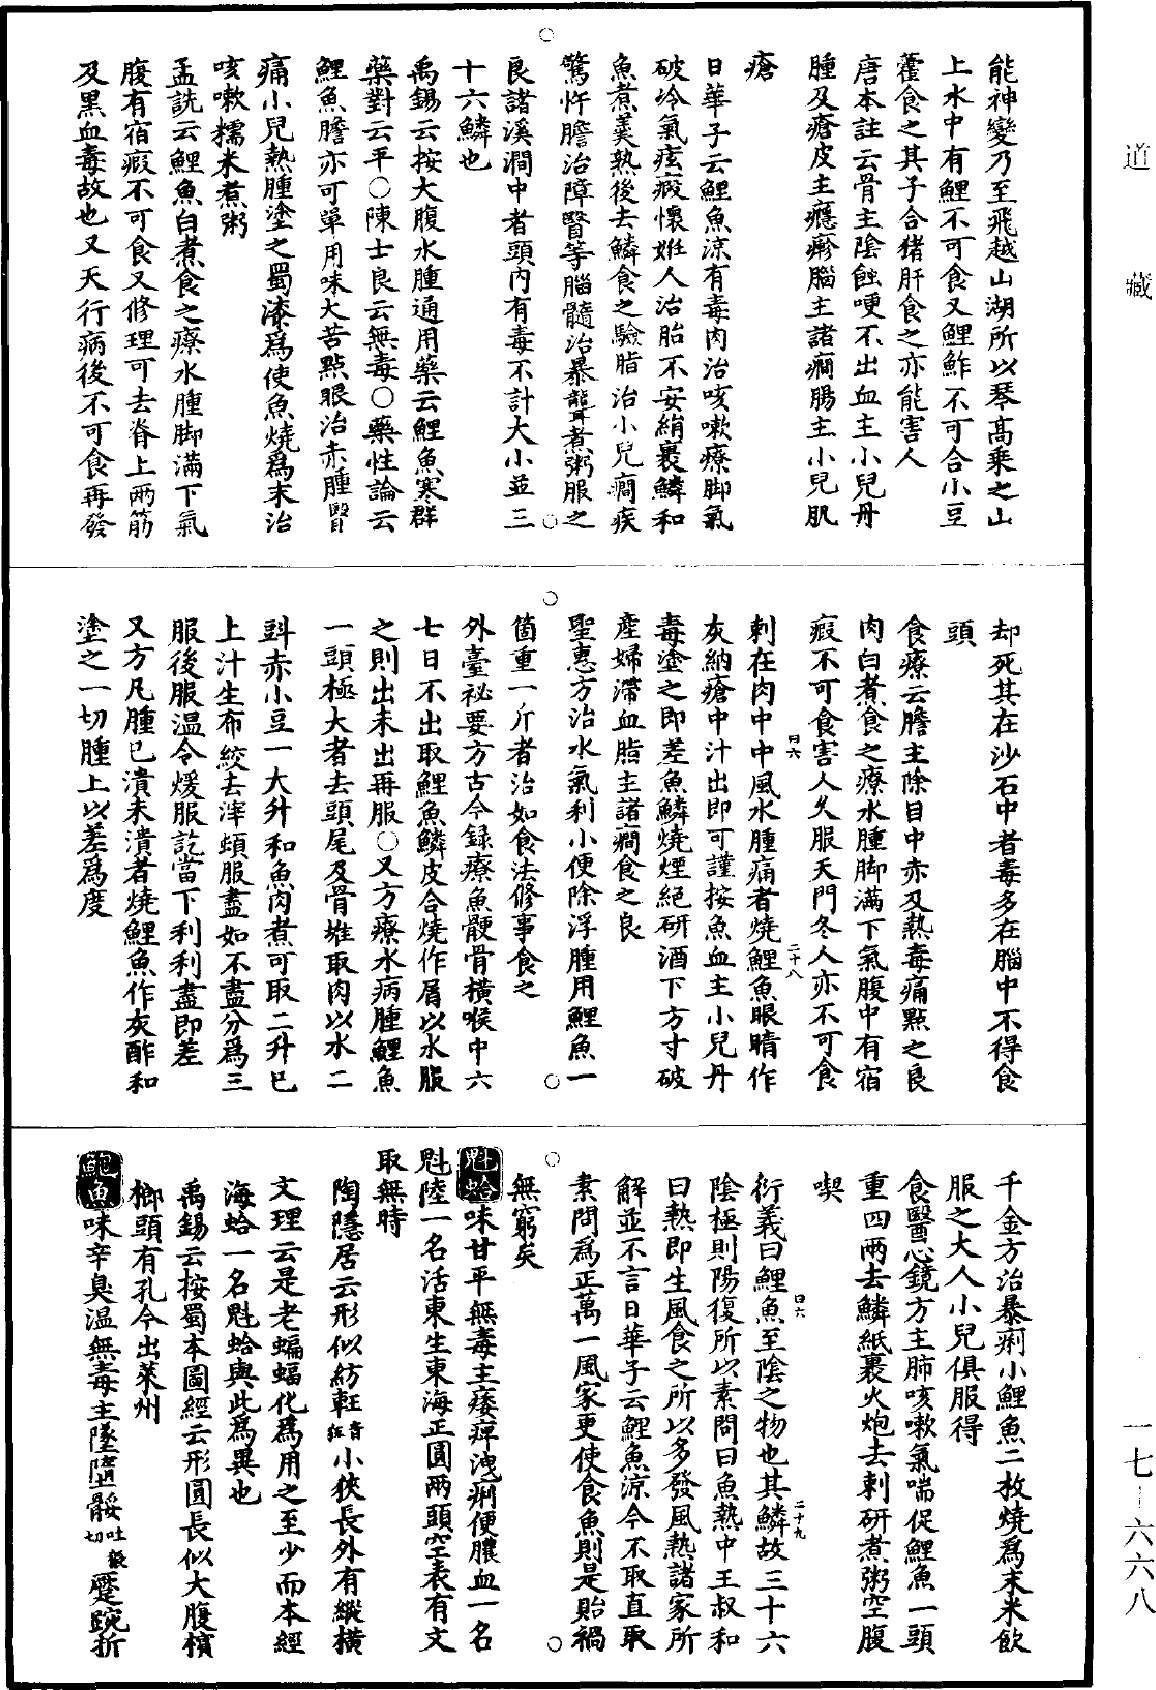 能神變乃至飛越山湖所以琴高乘之山
上水中有鯉不可食又鯉鮓不可合小豆
藿食之其子合猪肝食之亦能害人
唐本註云骨主陰蝕哽不出血主小兒丹
腫及瘡皮主癮瘮腦主諸癇腸主小兒肌
瘡
日華子云鯉魚涼有毒肉治咳嗽療脚氣
破冷氣痃癖懷姙人治胎不安絹裹鱗和
魚煮羹熟後去鱗食之驗脂治小兒癇疾
驚忤膽治障瞖等腦髓治暴聾煮粥服之
良諸溪澗中者頭內有毒不計大小並三
十六鱗也
禹錫云按大腹水腫通用藥云鯉魚寒群
藥對云平○陳士良云無毒○藥性論云
鯉魚膽亦可單用味大苦點眼治赤腫瞖
痛小兒熱腫塗之蜀漆爲使魚燒爲末治
咳嗽糯米煮粥
孟詵云鯉魚白煮食之療水腫脚滿下氣
腹有宿瘕不可食又修理可去脊上兩筋
及黑血毒故也又天行病後不可食再發
却死其在沙石中者毒多在腦中不得食
頭
食療云膽主除目中赤及熱毒痛點之良
肉白煮食之療水腫脚滿下氣腹中有宿
瘕不可食害人久服天門冬人亦不可食
刺在肉中中風水腫痛者燒鯉魚眼睛作
灰納瘡中汁出即可謹按魚血主小兒丹
毒塗之即差魚鱗燒煙絕研酒下方寸破
產婦滯血脂主諸癇食之良
聖惠方治水氣利小便除浮腫用鯉魚一
箇重一斤者治如食法修事食之
外臺祕要方古今錄療魚骾骨橫喉中六
七日不出取鯉魚鱗皮合燒作屑以水服
之則出未出再服○又方療水病腫鯉魚
一頭極大者去頭尾及骨唯取肉以水二
斗赤小豆一大升和魚肉煮可取二升已
上汁生布絞去滓頓服盡如不盡分爲三
服後服温令煖服訖當下利利盡即差
又方凡腫已潰未潰者燒鯉魚作灰酢和
塗之一切腫上以差爲度
千金方治暴痢小鯉魚二枚燒爲末米飲
服之大人小兒俱服得
食醫心鏡方主肺咳嗽氣喘促鯉魚一頭
重四兩去鱗紙裹火炮去刺研煮粥空腹
喫
衍義曰鯉魚至陰之物也其鱗故三十六
陰極則陽復所以素問曰魚熱中王叔和
曰熱即生風食之所以多發風熱諸家所
解並不言日華子云鯉魚涼今不取直取
素問爲正萬一風家更使食魚則是貽禍
無窮矣
魁蛤味甘平無毒主痿痺洩痢便膿血一名
魁陸一名活東生東海正圓兩頭空表有文
取無時
陶隱居云形似紡軖音狂小狹長外有縱橫
文理云是老蝙蝠化爲用之至少而本經
海蛤一名魁蛤與此爲異也
禹錫云按蜀本圖經云形圓長似大腹檳
榔頭有孔今出萊州
鮑魚味辛臭温無毒主墜墮骽吐猥切蹷踠折
道藏
一七—六六八
曰六
二十八
曰六
二十九